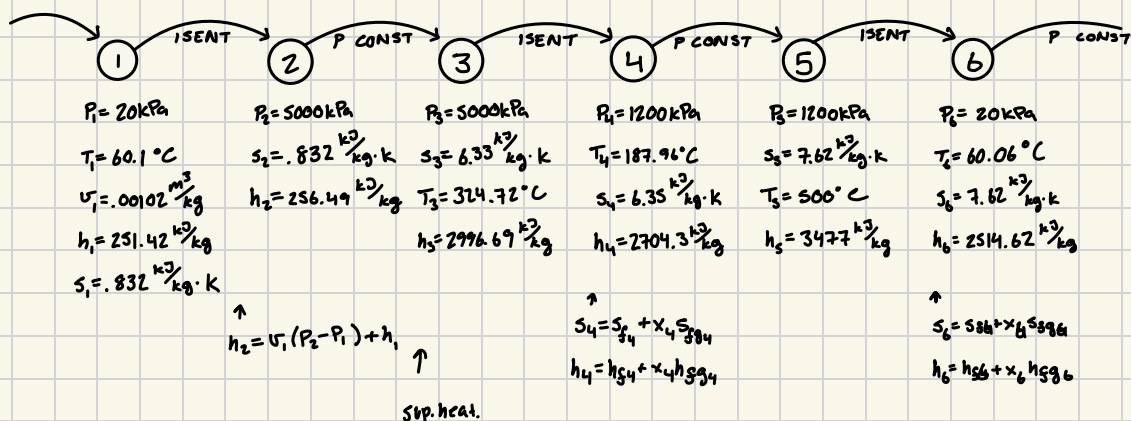 1 ISENT 2 P CONST 3 ISENT 4 P CONST 5 ISENT 6 P CONST
P₁= 20kPa
T₁=60.1 °C
v₁=.00102 m³/kg
h₁=251.42 kJ/kg
s₁=.832 kJ/kg·K
P₂=5000kPa
s₂=.832 kJ/kg·K
h₂=256.49 kJ/kg
↑
h₂=v₁(P₂-P₁)+h₁
P₃=5000kPa
s₃=6.33 kJ/kg·K
T₃=324.72°C
h₃=2996.69 kJ/kg
↑
sup. heat.
P₄=1200kPa
T₄=187.96°C
s₄=6.35 kJ/kg·K
h₄=2704.3 kJ/kg
↑
s₄=s_f₄+x₄s_fg₄
h₄=h_f₄+x₄h_fg₄
P₅=1200kPa
s₅=7.62 kJ/kg·K
T₅=500°C
h₅=3477 kJ/kg
P₆= 20kPa
T₆=60.06°C
s₆=7.62 kJ/kg·K
h₆=2514.62 kJ/kg
↑
s₆=s_f6+x₆s_fg6
h₆=h_f6+x₆h_fg6